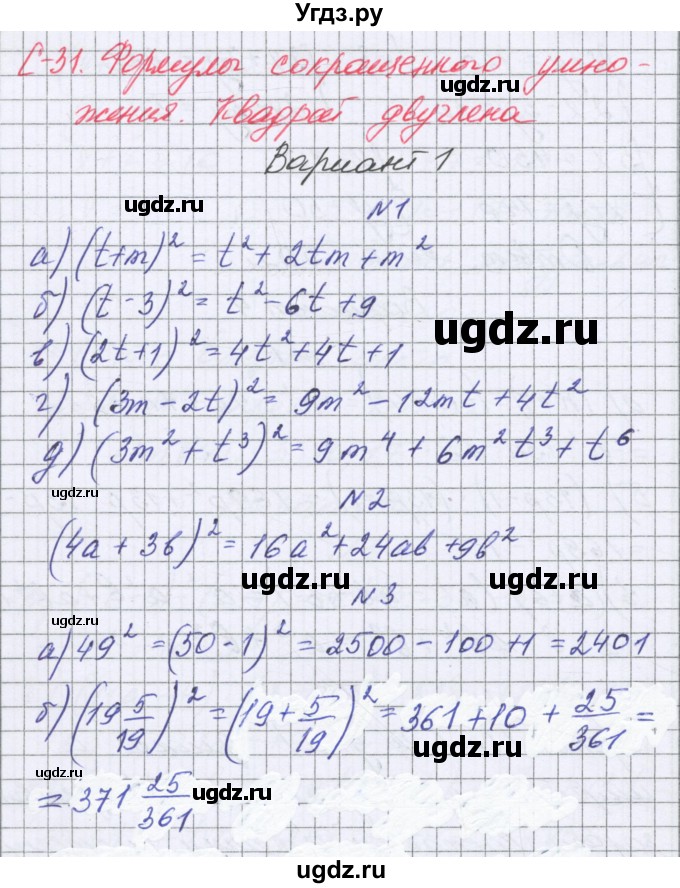 Угдз.ру
С-31. Формулы сокращенного умно-
жения. Квадрат двучлена
Вариант 1
ugdz.ru
N1
а) (t+m)² = t² + 2tm + m²
б) (t - 3)² = t² - 6t + 9
ugdz.ru
в) (2t+1)² = 4t² + 4t + 1
г) (3m - 2t)² = 9m² - 12mt + 4t²
д) (3m² + t³)² = 9m⁴ + 6m²t³ + t⁶
ugdz.ru
N2
(4а + 3в)² = 16а² + 24ав + 9в²
ugdz.ru
ugdz.ru
N3
ugdz.ru
а) 49² = (50 - 1)² = 2500 - 100 + 1 = 2401
б) (19 5/19)² = (19 + 5/19)² = 361 + 10 + 25/361 =
ugdz.ru
ugdz.ru
= 371 25/361
ugdz.ru
ugdz.ru